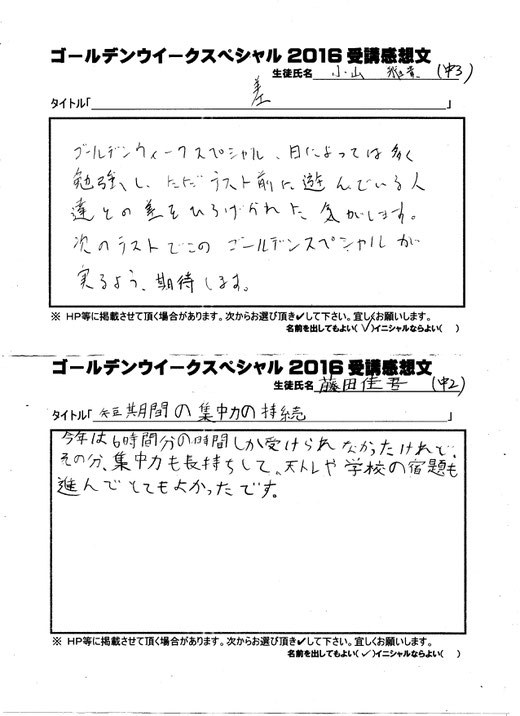 ゴールデンウイークスペシャル 2016 受講感想文
生徒氏名 小山 (中3)
タイトル「 差 」
ゴールデンウィークスペシャル、日によっては多く
勉強し、ただラスト前に遊んでいる人
達との差をひろげられた気がします。
次のラストでこのゴールデンスペシャルが
実るよう、期待します。
※ HP等に掲載させて頂く場合があります。次からお選び頂き✔して下さい。宜しくお願いします。
名前を出してもよい(✓)イニシャルならよい( )
ゴールデンウイークスペシャル 2016 受講感想文
生徒氏名 藤田佳吾 (中2)
タイトル「 短期間の集中力の持続 」
今年は6時間分の時間しか受けられなかったけれど、
その分、集中力も長持ちして、トレや学校の宿題も
進んでとてもよかったです。
※ HP等に掲載させて頂く場合があります。次からお選び頂き✔して下さい。宜しくお願いします。
名前を出してもよい(✓)イニシャルならよい( )